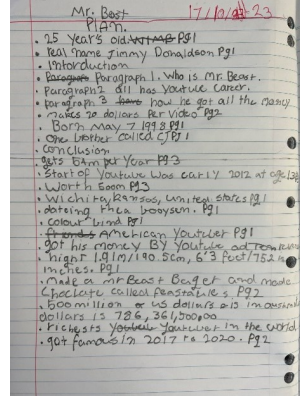 Mr. Best 17/10/23
PLAN.
• 25 year's old. Pg1
• real name Jimmy Donaldson Pg1
• Intorduction
• Paragraph 1. Who is Mr. Beast.
• Paragraph2 all has Youtube career.
• paragraph 3 how he got all the money
• makes 20 dollars Per Video Pg2
• Born may 7 1998 Pg1
• one brother called CJ Pg1
• conclusion
• gets 54m per year Pg3
• start of Youtube was early 2012 at age 13
• Worth 500m Pg3
• Wichita, kansas, united states Pg1
• dateing thea booysen. Pg1
• colour blind Pg1
• American Youtuber Pg1
• got his money BY Youtube ad
• hight 1.91m/190.5cm, 6'3 feet/75.2
inches. Pg1
• made a mr Beast Burger and made
Choclate called feastables Pg2
• 500 million or us dollars is in
dollars is 786,361,500,00
• richests Youtuver in the world
• got famous in 2017 to 2020. Pg2